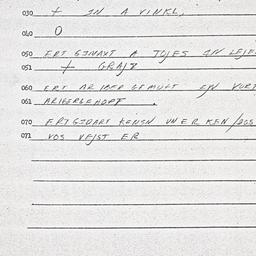 030 + IN A VINKL,
040 O
050 ERT GINAXT A TOJES IN LEJE
051 + GRAJZ
060 ERT ARIBER GEMULT EJN VORT
061 ARIBERGEHOPT .
070 ERT GIDART KENEN UN ER KEN/DOS
071 VOS VEJST ER